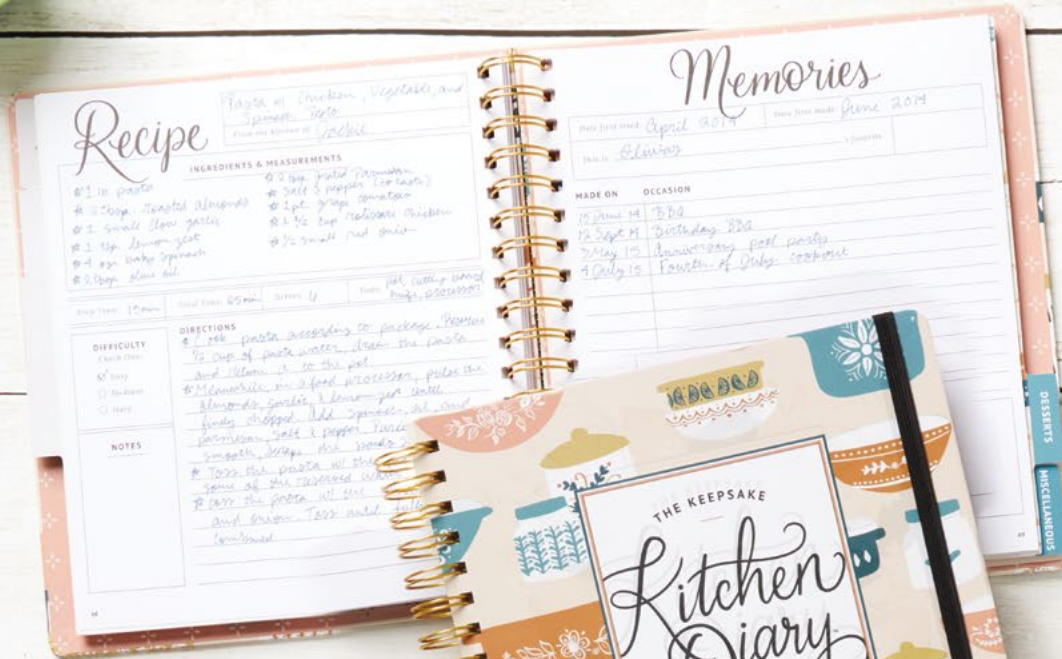 Recipe
Pasta w/ Chicken, Vegetables, and
Spinach Pesto
From the kitchen of Jackie
INGREDIENTS & MEASUREMENTS
*1 lb pasta
* 2 tbsp. roasted almonds
* 1 small clove garlic
* 1 tsp. lemon zest
*4 oz baby spinach
*2 tbsp olive oil
grated Parmesan
* salt & pepper (to taste)
* 1 pt. grape tomatoes
* 1 ½ cup rotisserie chicken
* ½ small red onion
Prep Time: 15 min
Total Time: 25 min
Serves: 4
Tools: pot, cutting board
knife, processor
DIFFICULTY
Check One:
Easy
Medium
Hard
NOTES
DIRECTIONS
* Cook pasta according to package. Reserve
½ cup of pasta water, drain the pasta
and return it to the pot.
*Meanwhile, in a food processor, pulse the
almonds, garlic, & lemon zest until
finely chopped. Add spinach, oil, and
parmesan, salt & pepper. Puree
smooth, scrape the
* Toss the pasta w/ the
some of the reserved
* Toss the pasta w/ the
and onion. Toss until
combined.
Memories
Date first tried: April 2014
Date first made: June 2014
This is Olivia's
's favorite
MADE ON
OCCASION
15 June 14 BBQ
12 Sept 14 Birthday BBQ
3 May 15 Anniversary pool party
4 July 15 Fourth of July cookout
DESSERTS
MISCELLANEOUS
THE KEEPSAKE
Kitchen
Diary